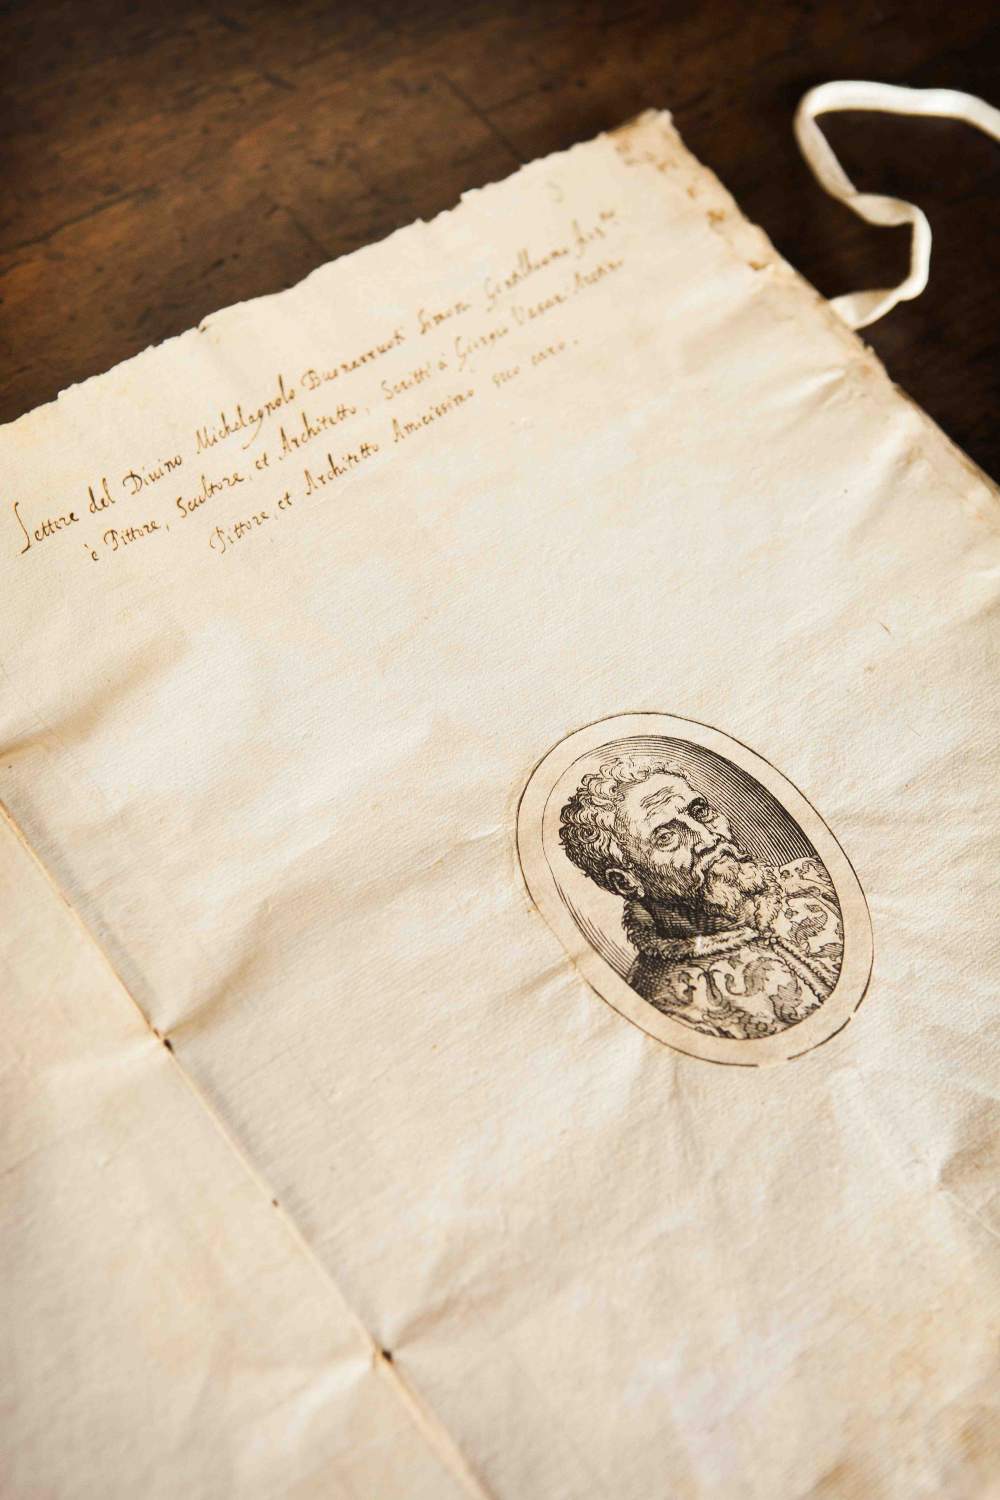 Lettere del Diuino Michelagnolo Buonarruoti Simoni
è Pittore, Scultore, et Architetto, Scritti à Giorgio Vasari Aretino
Pittore, et Architetto Amicissimo suo caro.